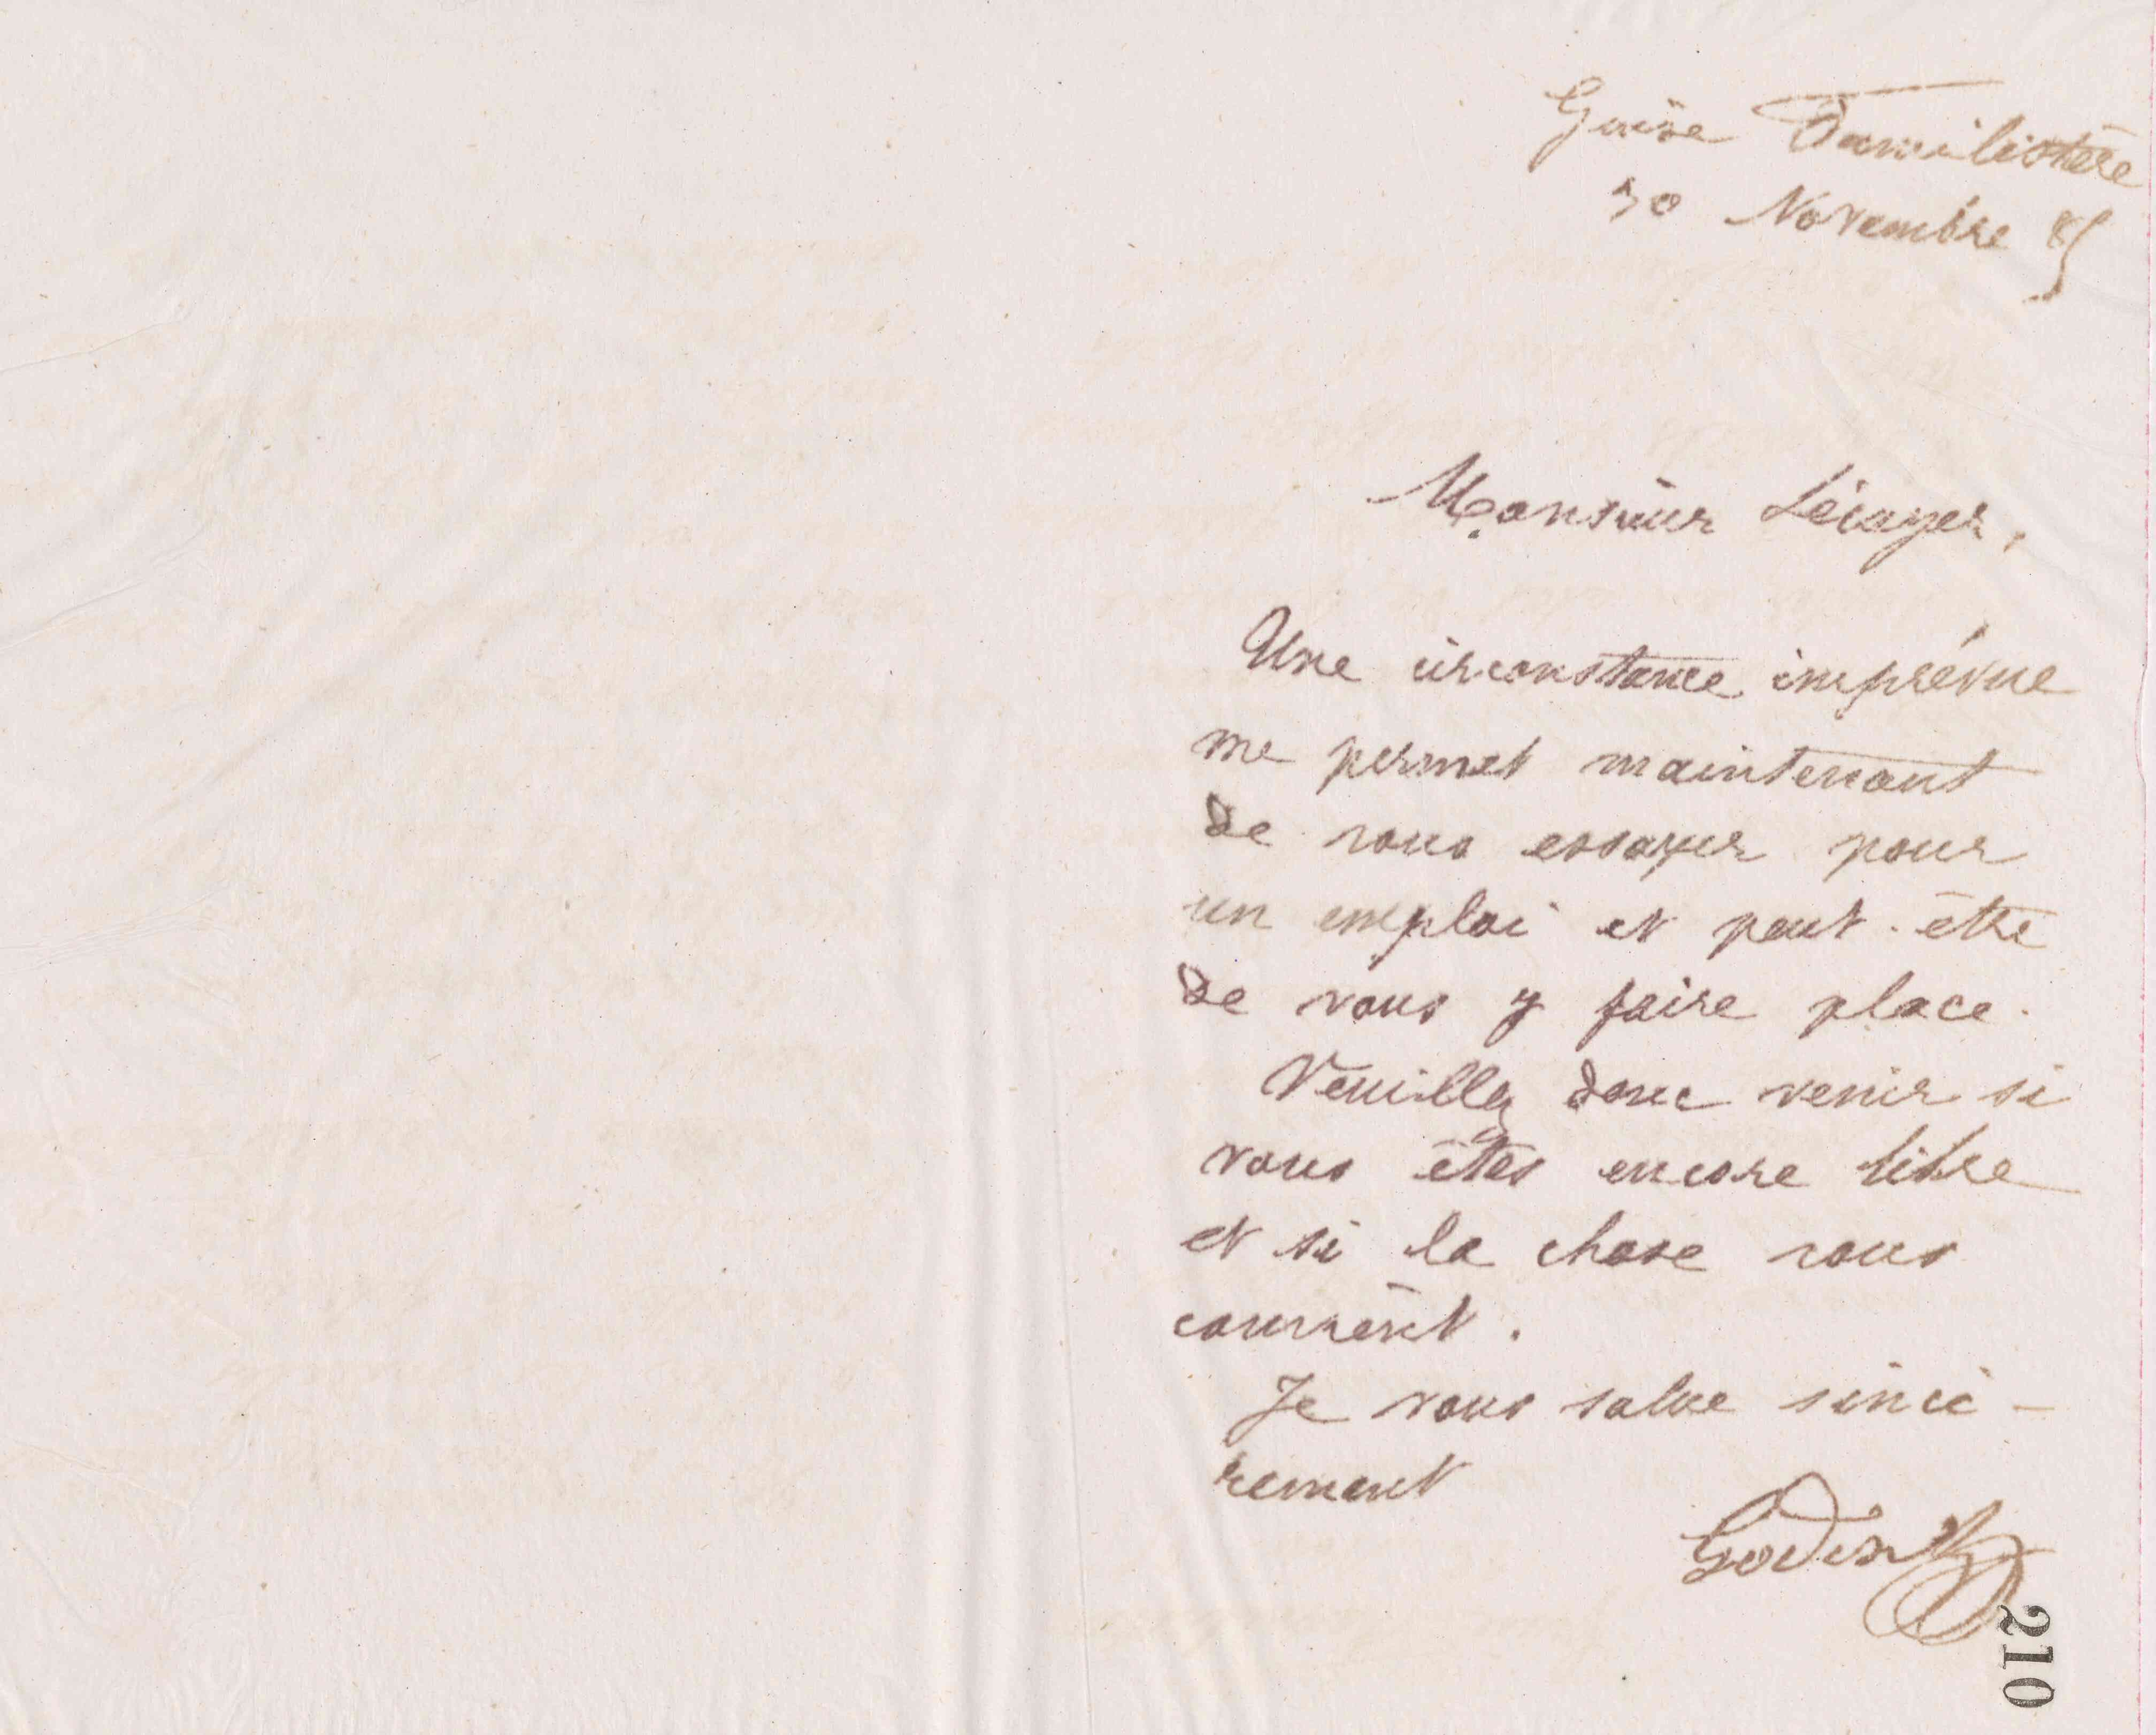 Guise Familistère
30 Novembre 85
Monsieur Lécuyer,
Une circonstance imprévue
me permet maintenant
de vous essayer pour
un emploi et peut-être
de vous y faire place.
Veuillez donc venir si
vous êtes encore libre
et si la chose vous
convient.
Je vous salue sincè-
rement
Godin
210